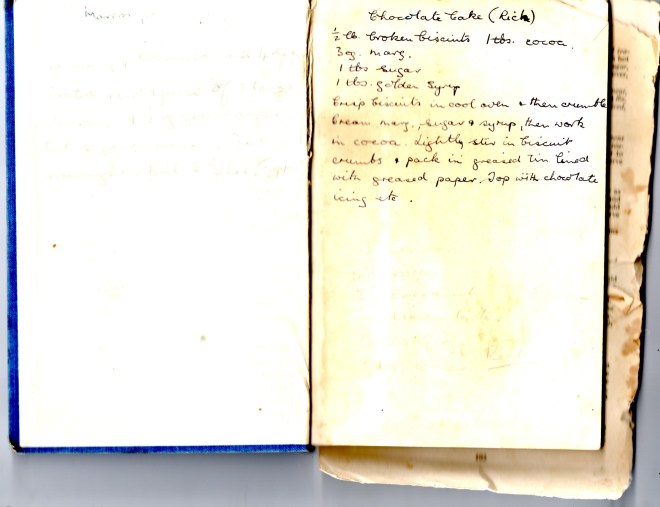 Chocolate Cake (Rich)
½ lb. broken biscuits 1 tbs. cocoa.
3 oz. marg.
1 tbs sugar
1 tbs. golden syrup
Crisp biscuits in cool oven & then crumble
Cream marg., sugar & syrup, then work
in cocoa. Lightly stir in biscuit
crumbs & pack in greased tin lined
with greased paper. Top with chocolate
icing etc.